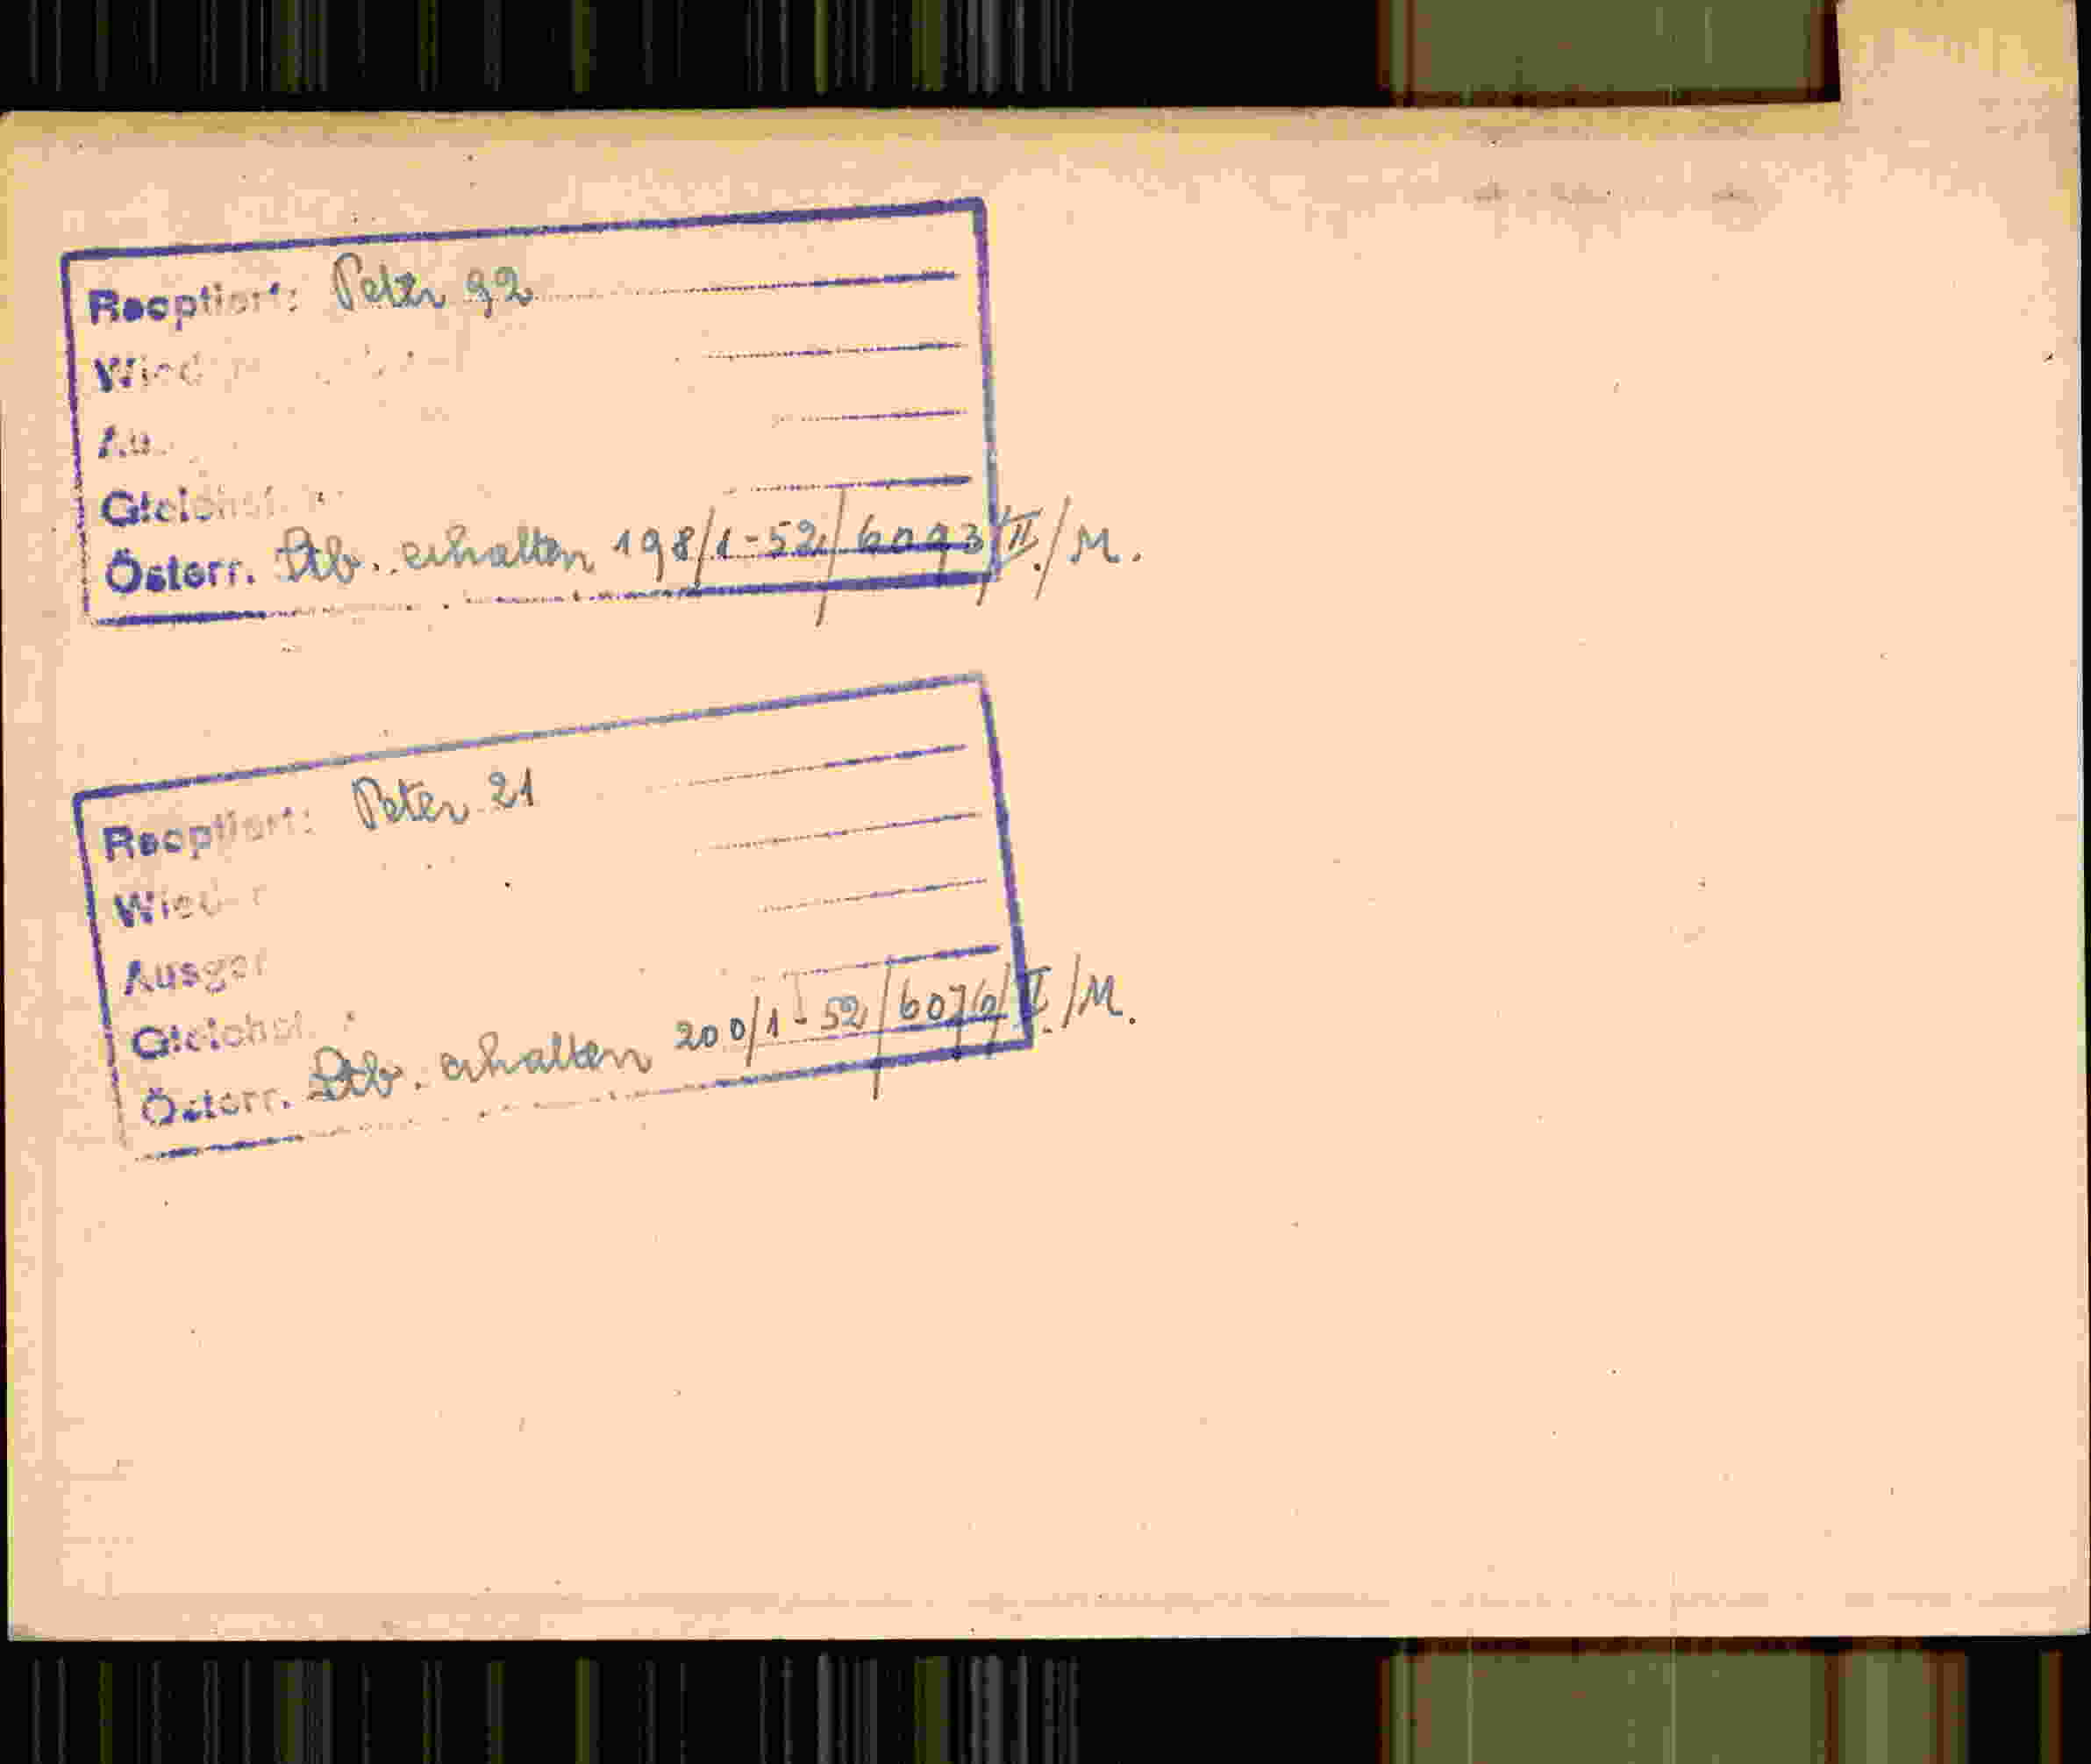 Reoptiert: Peter 92
Wied
Au
Gleichst
Österr. Stb. erhalten 198/1-52/6093/II./M.
Reoptiert: Peter 21
Wieder
Ausger
Gleichst
Österr. Stb. erhalten 200/1-52/6076/II./M.